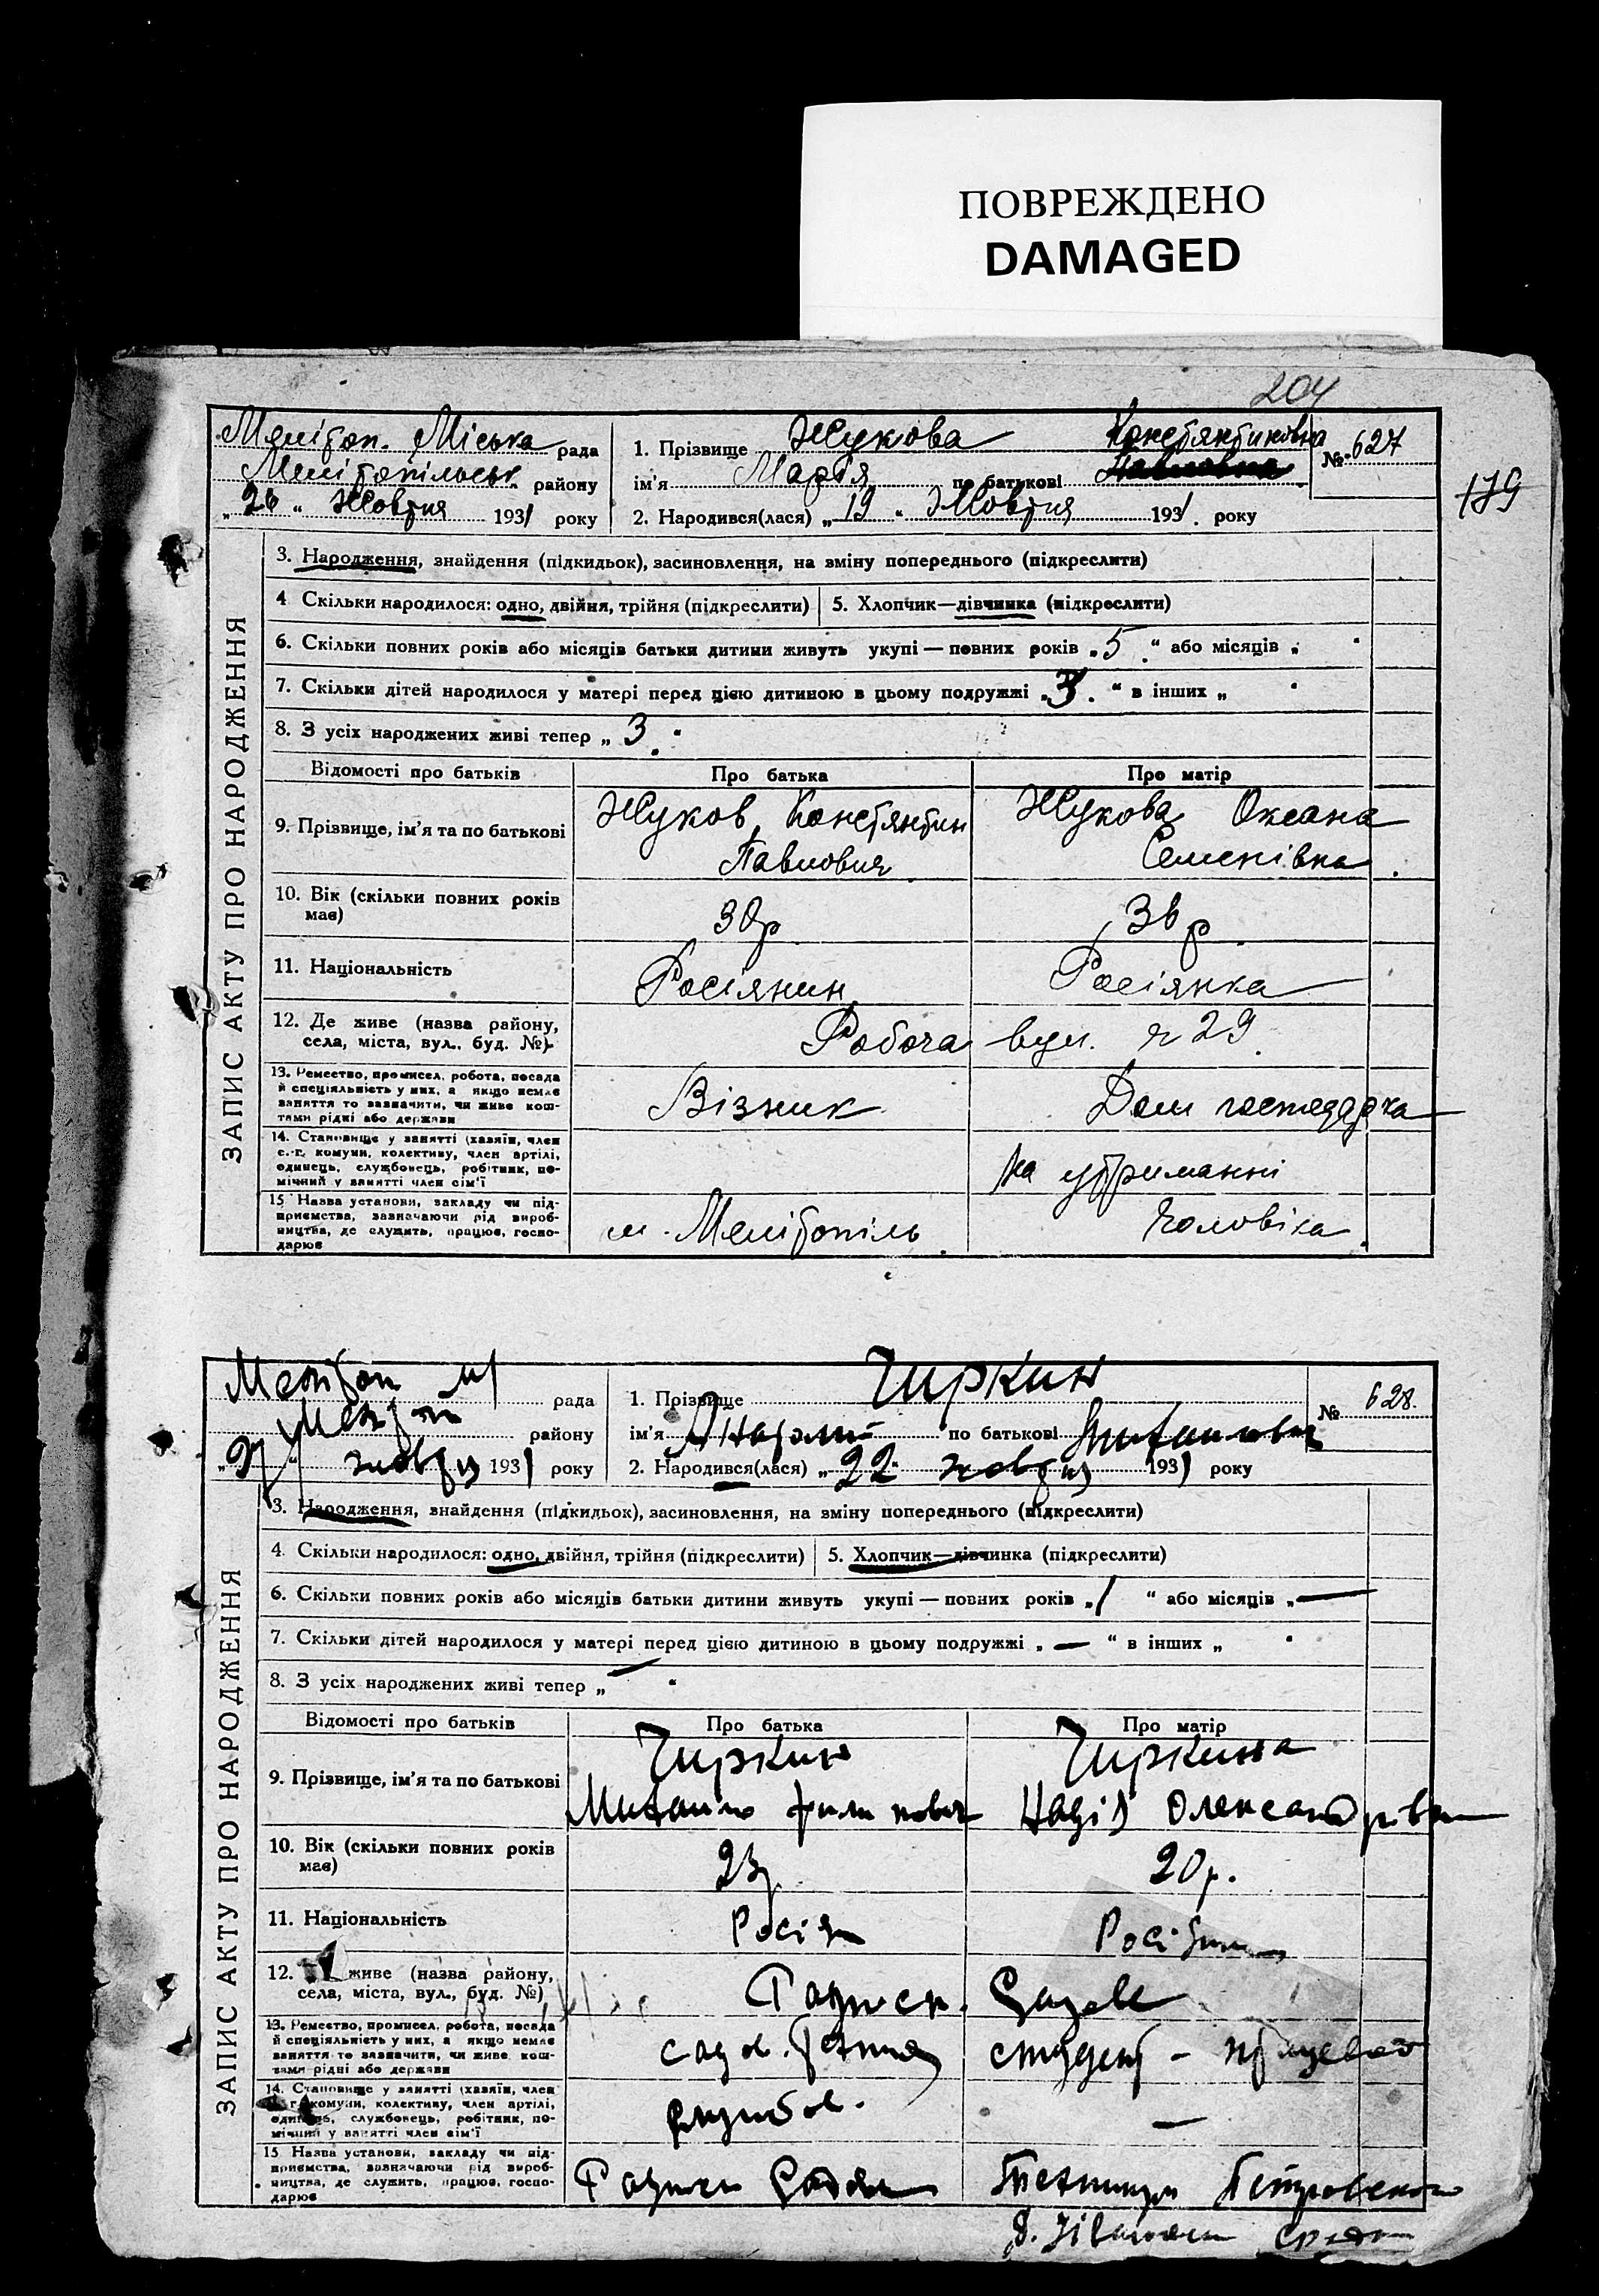 ПОВРЕЖДЕНО
DAMAGED
204
179
Мелітоп. Міська рада
Мелітопільськ. району
„26“ Жовтня 1931 року
1. Прізвище Жукова Констянтиновна
ім’я Марія по батькові
№ 627
2. Народився(лася) „19“ Жовтня 1931. року
ЗАПИС АКТУ ПРО НАРОДЖЕННЯ
3. Народження, знайдення (підкидьок), засиновлення, на зміну попереднього (підкреслити)
4 Скільки народилося: одно, двійня, трійня (підкреслити)
5. Хлопчик—дівчинка (підкреслити)
6. Скільки повних років або місяців батьки дитини живуть укупі — повних років „5“ або місяців „
7. Скільки дітей народилося у матері перед цією дитиною в цьому подружжі „3.“ в інших „
8. З усіх народжених живі тепер „3.“
Відомості про батьків Про батька Про матір
9. Прізвище, ім’я та по батькові
Жуков Констянтин
Павлович
Жукова Оксана
Семенівна
10. Вік (скільки повних років
має)
30р
36р
11. Національність
Росіянин
Росіянка
12. Де живе (назва району,
села, міста, вул., буд. №)
Робоча вул. 29
13. Ремество, промисел, робота, посада
й спеціяльність у них, а якщо немає
заняття то зазначити, чи живе кош-
тами рідні або держави
Візник
Дом господарка
14. Становище у занятті (хазяїн, член
с.-г. комуни, колективу, член артілі,
одинець, службовець, робітник, по-
мічний у занятті член сім’ї
На утриманні
15 Назва установи, закладу чи під-
приємства, зазначаючи рід вироб-
ництва, де служить, працює, госпо-
дарює
м. Мелітопіль
Чоловіка
рада
району
жовтня 1931 року
1. Прізвище Чиркин
ім’я Анатолій по батькові Михайлович
№ 628.
2. Народився(лася) „22“ жовтня 1931 року
ЗАПИС АКТУ ПРО НАРОДЖЕННЯ
3. Народження, знайдення (підкидьок), засиновлення, на зміну попереднього (підкреслити)
4. Скільки народилося: одно, двійня, трійня (підкреслити)
5. Хлопчик—дівчинка (підкреслити)
6. Скільки повних років або місяців батьки дитини живуть укупі — повних років „1“ або місяців „—
7. Скільки дітей народилося у матері перед цією дитиною в цьому подружжі „—“ в інших „
8. З усіх народжених живі тепер „—“
Відомості про батьків Про батька Про матір
9. Прізвище, ім’я та по батькові
Чиркин
Михайло Филипович
Чиркина
Надія Олександрівна
10. Вік (скільки повних років
має)
23р
20р.
11. Національність
12. живе (назва району,
села, міста, вул., буд. №)
13. Ремество, промисел, робота, посада
й спеціяльність у них, а якщо немає
заняття то зазначити, чи живе кош-
тами рідні або держави
садов. технік
студент
14. Становище у занятті (хазяїн, член
комуни, колективу, член артілі,
одинець, службовець, робітник, по-
мічний у занятті член сім’ї
службов.
—
15 Назва установи, закладу чи під-
приємства, зазначаючи рід вироб-
ництва, де служить, працює, госпо-
дарює